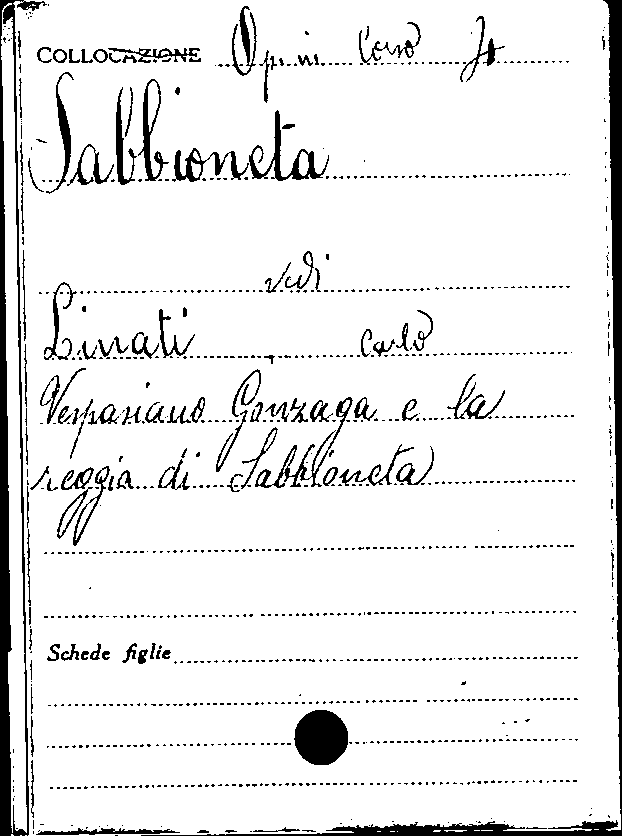 COLLOCAZIONE Op. in Corso
Sabbioneta
vedi
Linati, Carlo
Vespasiano Gonzaga e la
reggia di Sabbioneta
Schede figlie